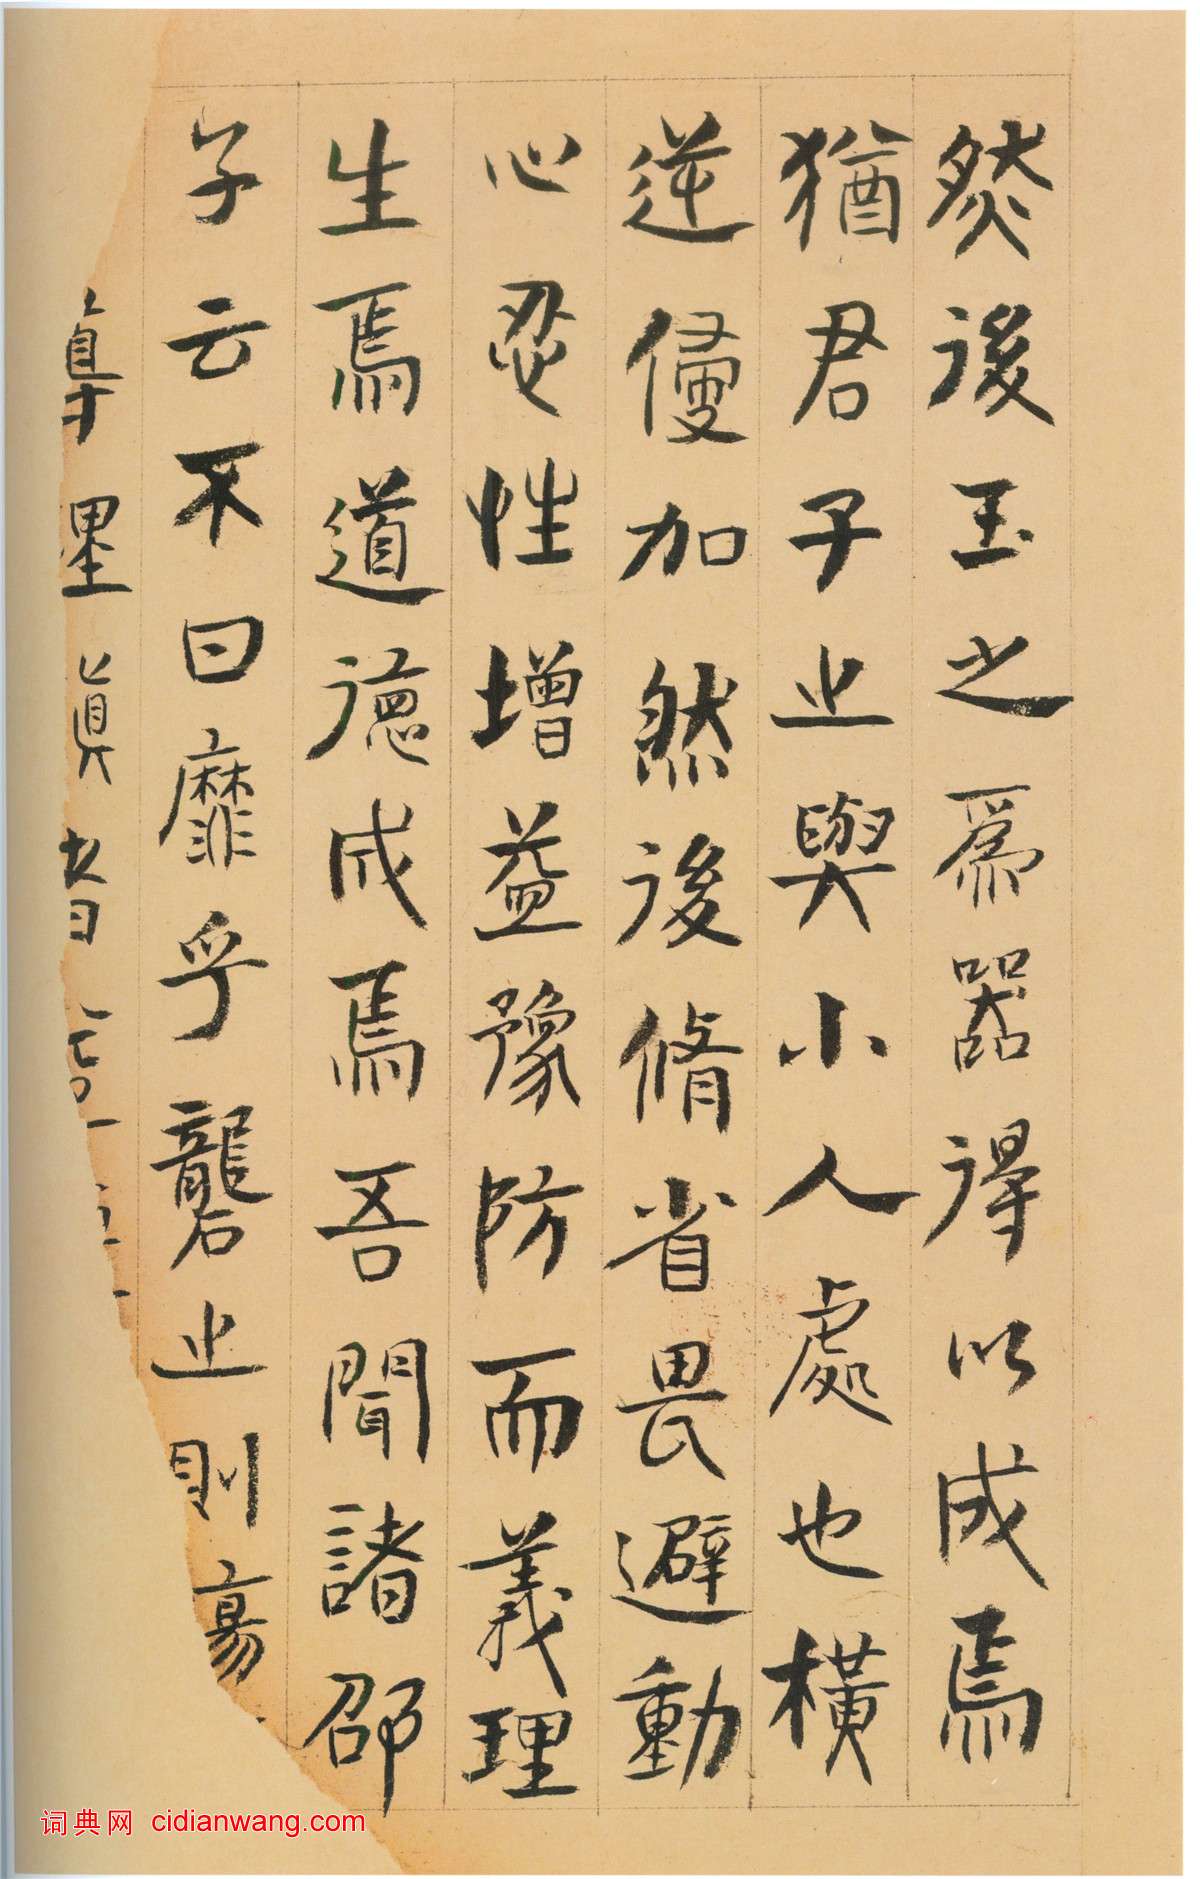 然後玉之為器得以成焉
猶君子之與小人處也橫
逆侵加然後脩省畏避動
心忍性增益豫防而義理
生焉道德成焉吾聞諸邵
子云不曰靡乎礱之則
真書
词典网 cidianwang.com